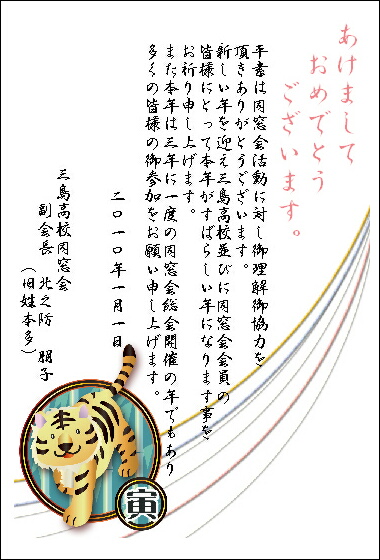 あけまして
おめでとう
ございます。
平素は同窓会活動に対し御理解御協力を
頂きありがとうございます。
新しい年を迎え三島高校並びに同窓会会員の
皆様にとって本年がすばらしい年になります事を
お祈り申し上げます。
また本年は三年に一度の同窓会総会開催の年でもあり
多くの皆様の御参加をお願い申し上げます。
二〇一〇年一月一日
三島高校同窓会
副会長 北之防 朋子
(旧姓本多)
寅